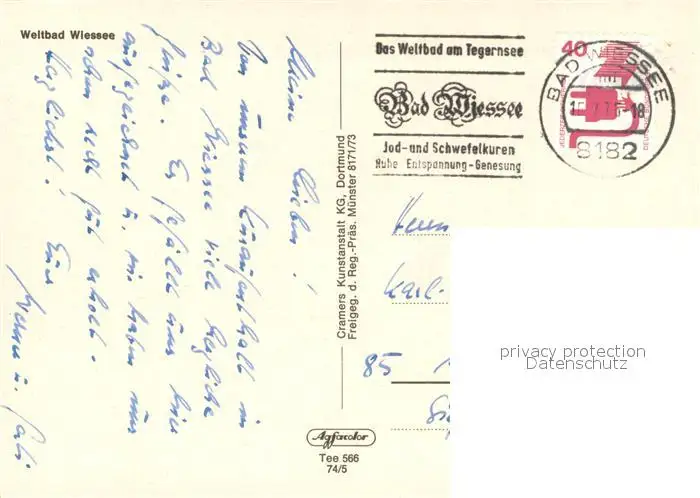 Weltbad Wiessee
Meine Lieben!
Von unserem Kuraufenthalt in
Bad Wiessee viele herzliche
Grüße. Es gefällt uns hier
ausgezeichnet u. wir haben uns
schon recht gut erholt.
Herzlichst! Eure
Cramers Kunstanstalt KG, Dortmund
Freigeg. d. Reg.-Präs. Münster 8171/73
Das Weltbad am Tegernsee
Bad Wiessee
Jod- und Schwefelkuren
Ruhe Entspannung - Genesung
40
BAD WIESSEE
-18
8182
Herrn
Karl-
85
privacy protection
Datenschutz
Agfacolor
Tee 566
74/5